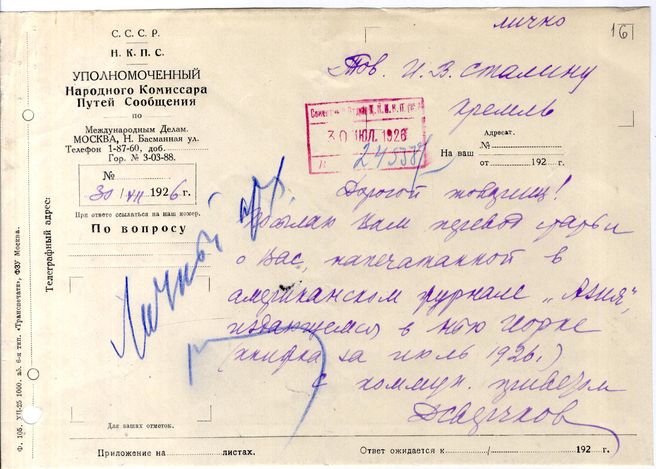 лично
16
С. С. С. Р.
Н. К. П. С.
УПОЛНОМОЧЕННЫЙ
Народного Комиссара
Путей Сообщения
по
Международным Делам.
МОСКВА, Н. Басманная ул.
Телефон 1-87-60, доб.
Гор. № 3-03-88.
№
30/VII 1926 г.
При ответе ссылаться на наш номер.
По вопросу
Телеграфный адрес:
Ф. 105. VII-25 1000. аб. 6-я тип. „Транспечати", ФЗУ Москва.
Тов. И. В. Сталину
Кремль
30 ИЮЛ. 1926
Адресат.
На ваш №
от 192 г.
Личный арх.
Дорогой товарищ!
Посылаю Вам перевод статьи
о Вас, напечатанной в
американском журнале „Азия",
издающемся в Нью Йорке
(книжка за июль 1926.)
С коммун. приветом
Для ваших отметок.
Приложение на листах.
Ответ ожидается к 192 г.